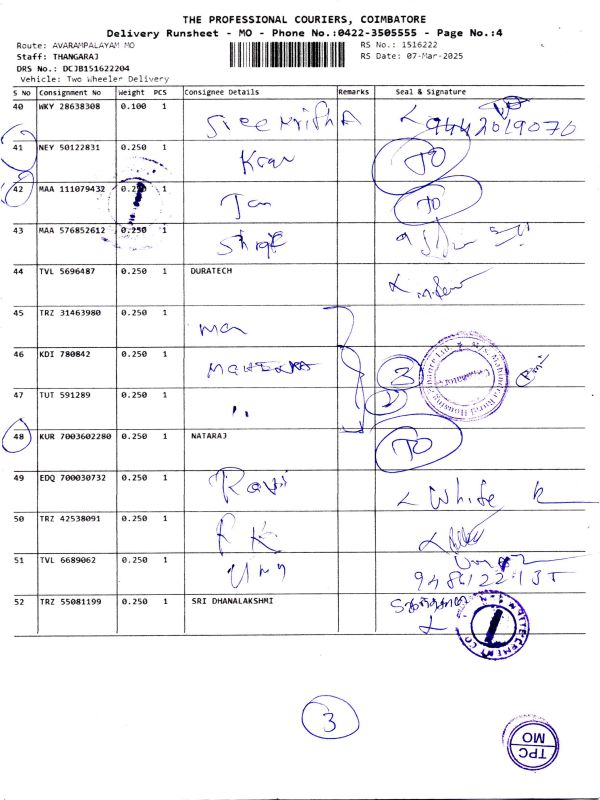 THE PROFESSIONAL COURIERS, COIMBATORE
Delivery Runsheet - MO - Phone No.:0422-3505555 - Page No.:4
Route: AVARAMPALAYAM MO
RS No.: 1516222
Staff: THANGARAJ
RS Date: 07-Mar-2025
DRS No.: DCJB151622204
Vehicle: Two Wheeler Delivery
S No Consignment No Weight PCS Consignee Details Remarks Seal & Signature
40 WKY 28638308 0.100 1
9442019070
41 NEY 50122831 0.250 1
TO
42 MAA 111079432 0.250 1
TO
43 MAA 576852612 0.250 1
44 TVL 5696487 0.250 1 DURATECH
45 TRZ 31463980 0.250 1
46 KDI 780842 0.250 1
3
47 TUT 591289 0.250 1 "
48 KUR 7003602280 0.250 1 NATARAJ TO
49 EDQ 700030732 0.250 1 Ravi
White
50 TRZ 42538091 0.250 1 R K
51 TVL 6689062 0.250 1
52 TRZ 55081199 0.250 1 SRI DHANALAKSHMI
3
TPC
MO